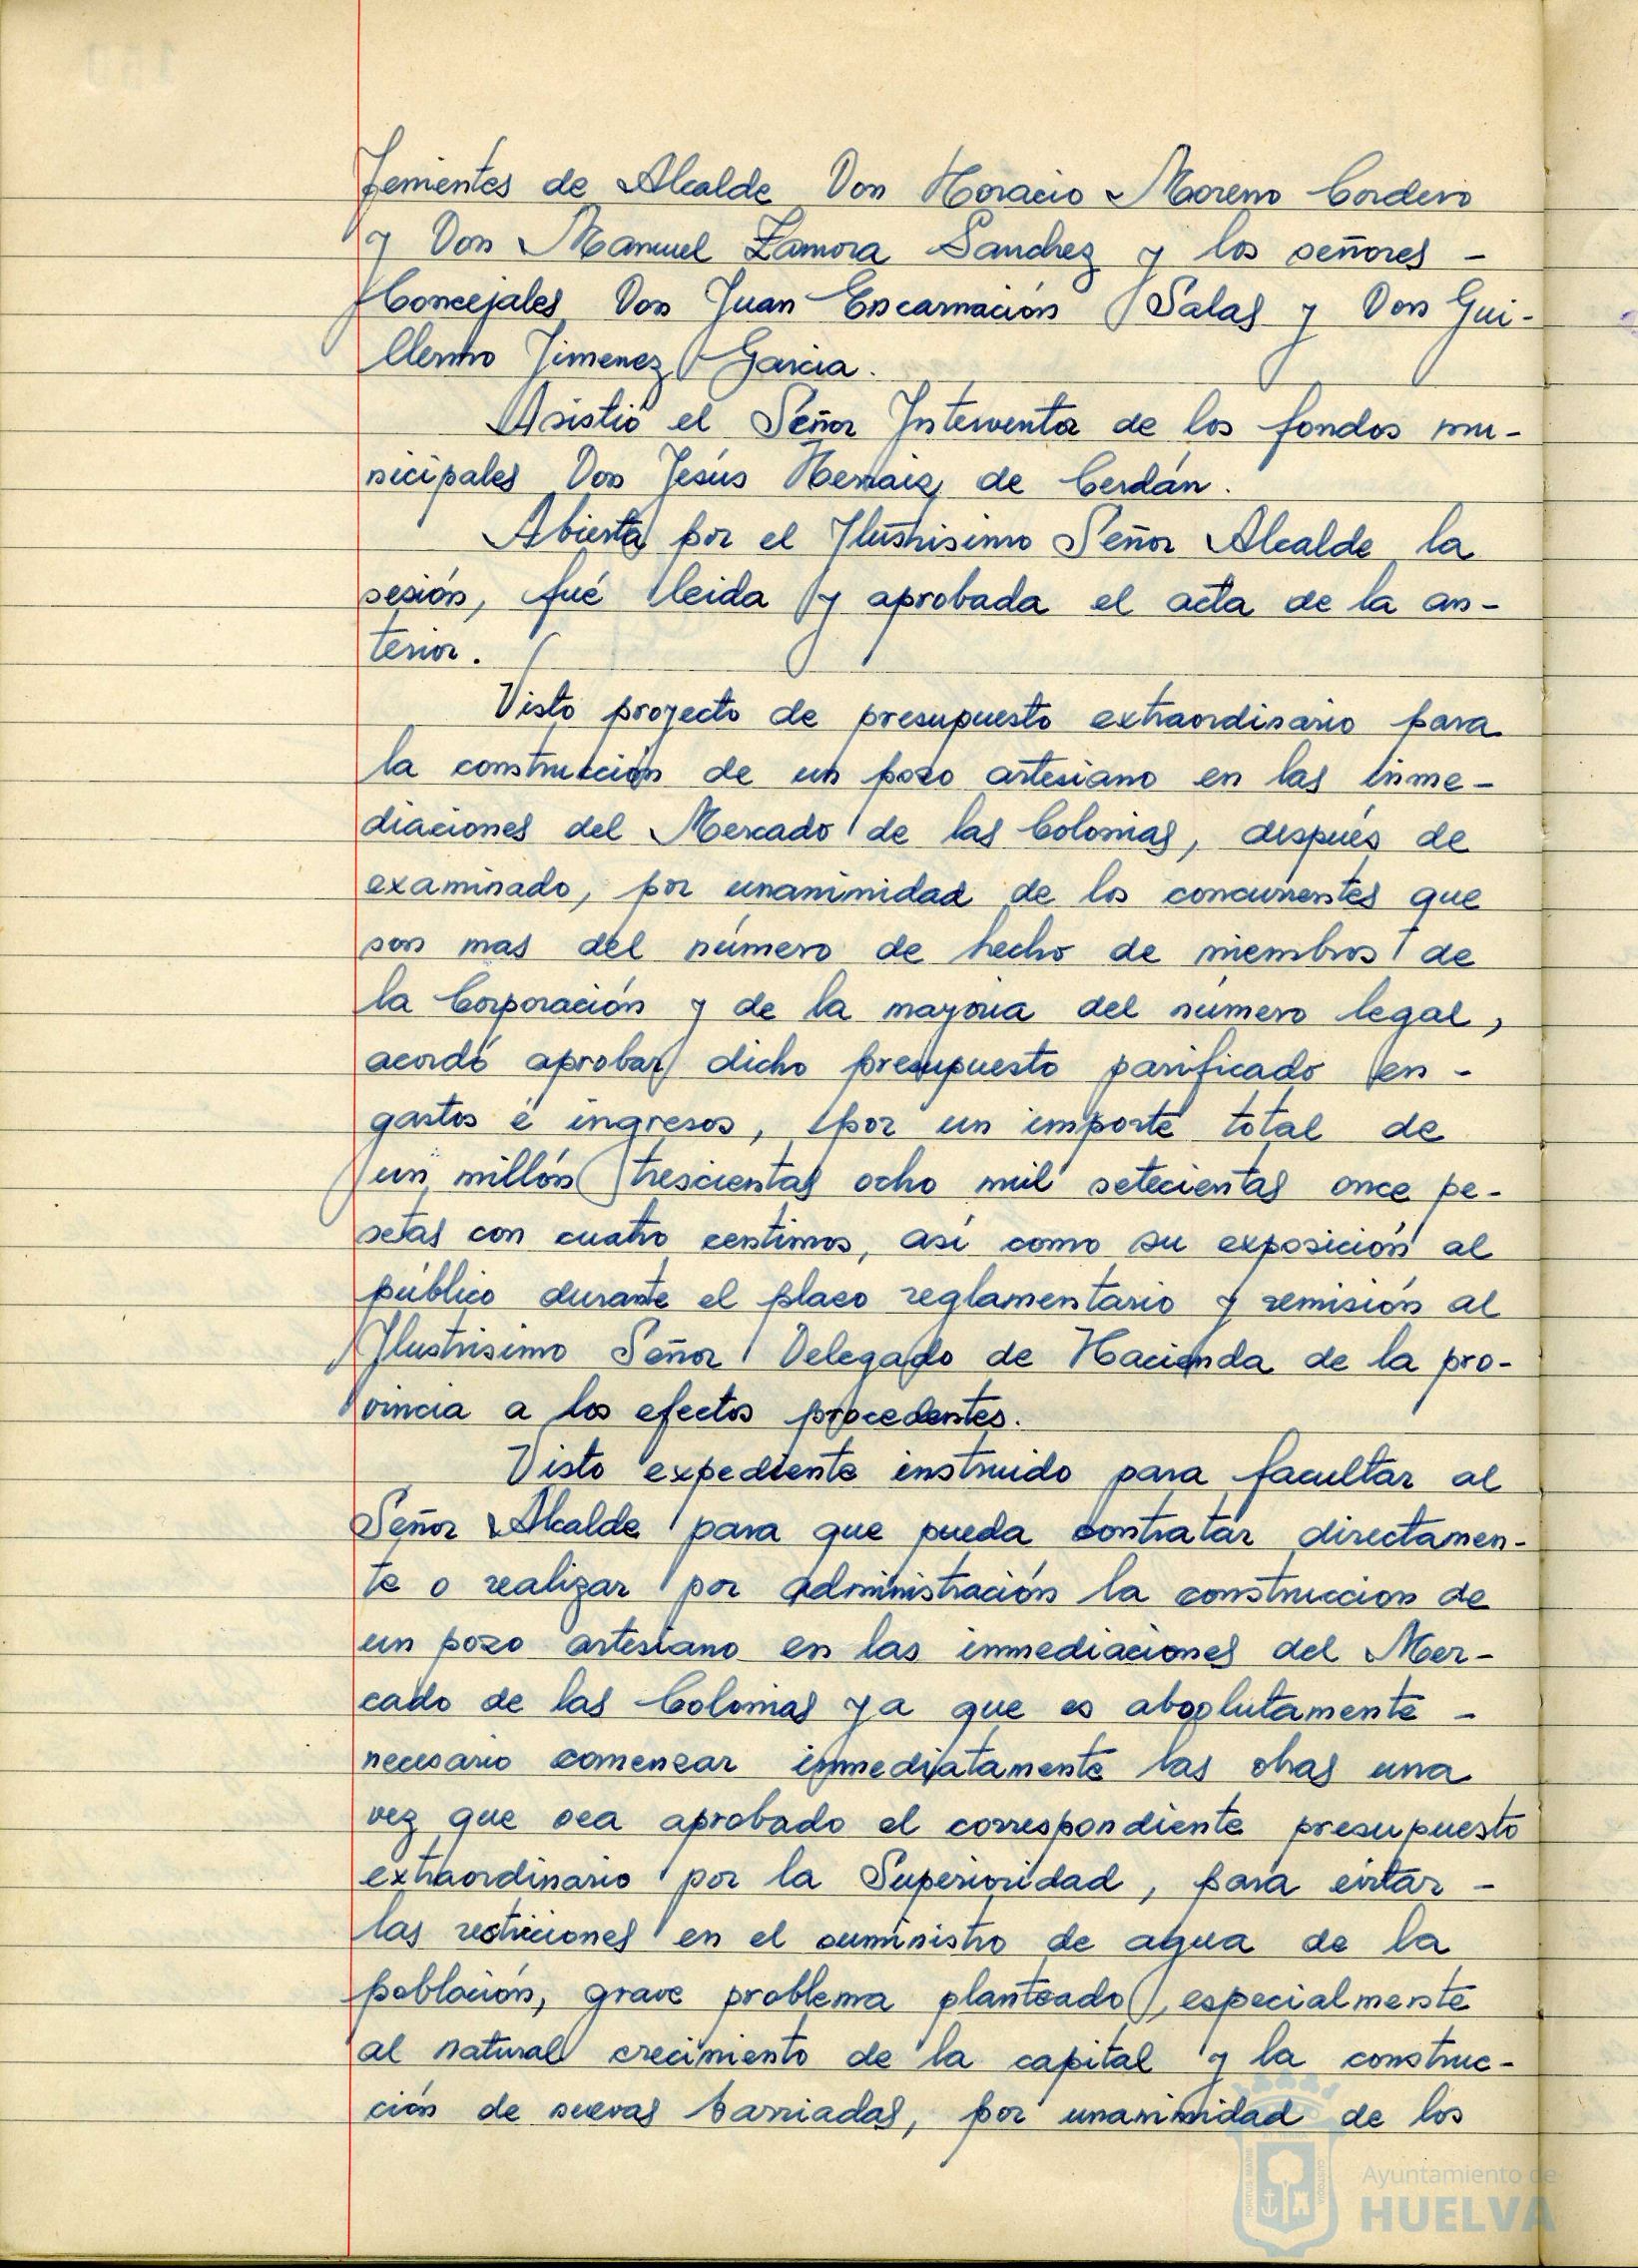 Tenientes de Alcalde Don Horacio Moreno Cordero
y Don Manuel Zamora Sanchez y los señores -
Concejales Don Juan Encarnación Salas y Don Gui-
llermo Jimenez Garcia.
Asistió el Señor Interventor de los fondos mu-
nicipales Don Jesús Herraiz de Cerdán.
Abierta por el Ilustrisimo Señor Alcalde la
sesión, fué leida y aprobada el acta de la an-
terior.
Visto proyecto de presupuesto extraordinario para
la construcción de un pozo artesiano en las inme-
diaciones del Mercado de las Colonias, después de
examinado, por unanimidad de los concurrentes que
son mas del número de hecho de miembros de
la Corporación y de la mayoria del número legal,
acordó aprobar dicho presupuesto parificado en -
gastos é ingresos, por un importe total de
un millón trescientas ocho mil setecientas once pe-
setas con cuatro centimos, así como su exposición al
público durante el plazo reglamentario y remisión al
Ilustrisimo Señor Delegado de Hacienda de la pro-
vincia a los efectos procedentes.
Visto expediente instruido para facultar al
Señor Alcalde para que pueda contratar directamen-
te o realizar por administración la construccion de
un pozo artesiano en las inmediaciones del Mer-
cado de las Colonias ya que es absolutamente -
necesario comenzar inmediatamente las obras una
vez que sea aprobado el correspondiente presupuesto
extraordinario por la Superioridad, para evitar -
las restricciones en el suministro de agua de la
población, grave problema planteado, especialmente
al natural crecimiento de la capital y la construc-
ción de nuevas barriadas, por unanimidad de los
Ayuntamiento de
HUELVA